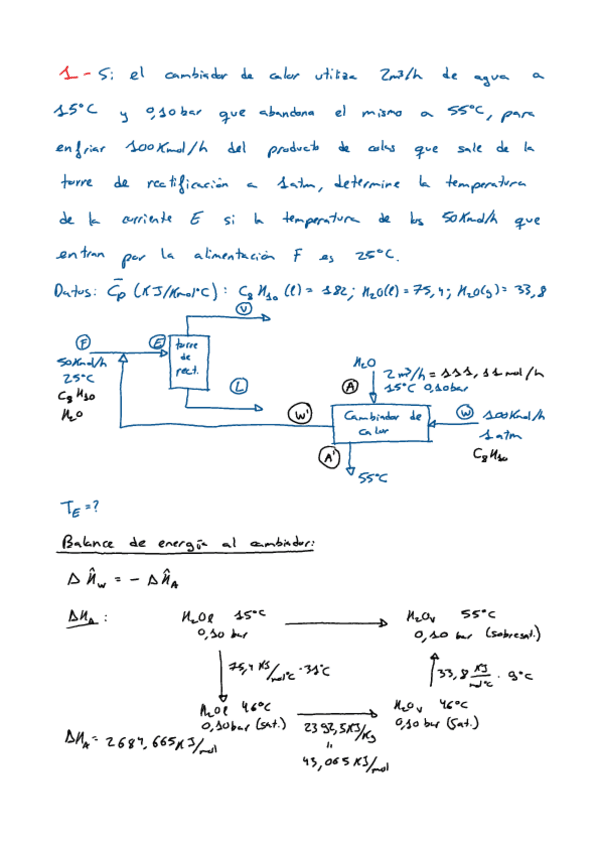 1 - Si el cambiador de calor utiliza 2m³/h de agua a
15°C y 0,10 bar que abandona el mismo a 55°C, para
enfriar 100Kmol/h del producto de colas que sale de la
torre de rectificación a 1atm, determine la temperatura
de la corriente E si la temperatura de los 50Kmol/h que
entran por la alimentación F es 25°C.
Datos: C̄p (KJ/Kmol°C): C8H10 (l) = 182; H2O(l) = 75,4; H2O(g) = 33,8
V
F
E
torre
de
rect.
50Kmol/h
25°C
C8H10
H2O
L
H2O
2 m³/h = 111,11 mol/h
A
15°C 0,10bar
W'
Cambiador de
calor
W
100Kmol/h
1 atm
C8H10
A'
55°C
TE = ?
Balance de energía al cambiador:
Δ Ĥw = - Δ ĤA
ΔHA :
H2Ol 15°C
0,10 bar
H2Ov 55°C
0,10 bar (sobresat.)
75,4 KJ/mol°C · 31°C
33,8 KJ/mol°C · 9°C
H2Ol 46°C
0,10bar (sat.)
2392,5KJ/Kg
"
43,065 KJ/mol
H2Ov 46°C
0,10 bar (sat.)
ΔHA = 2684,665KJ/mol